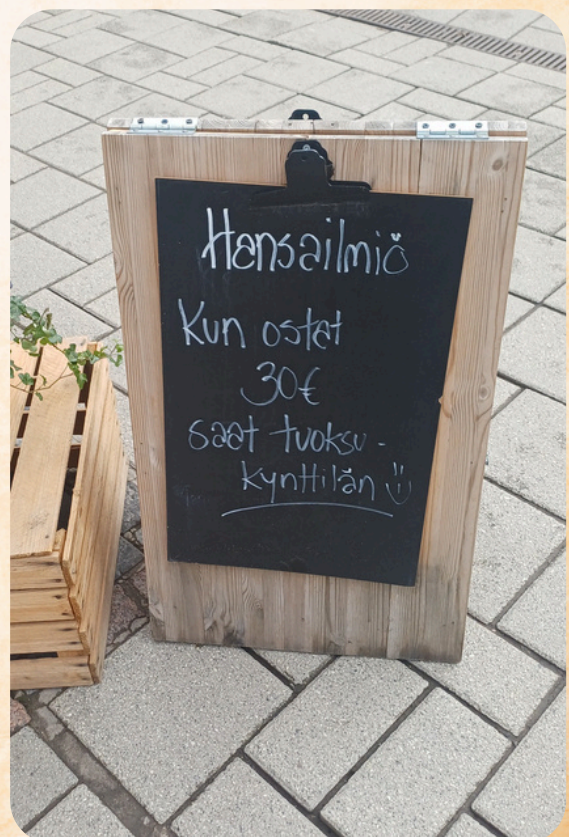 Hansailmiö
Kun ostat
30€
saat tuoksu-
kynttilän